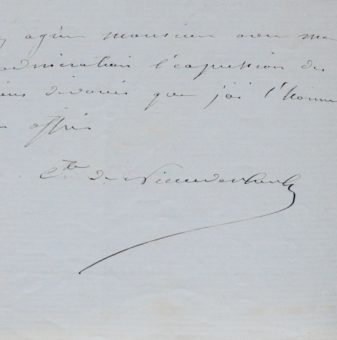 agréer monsieur avec ma
admiration l'expression des
dévoués que j'ai l'honneu
offrir
Cte de Nieuwerkerke